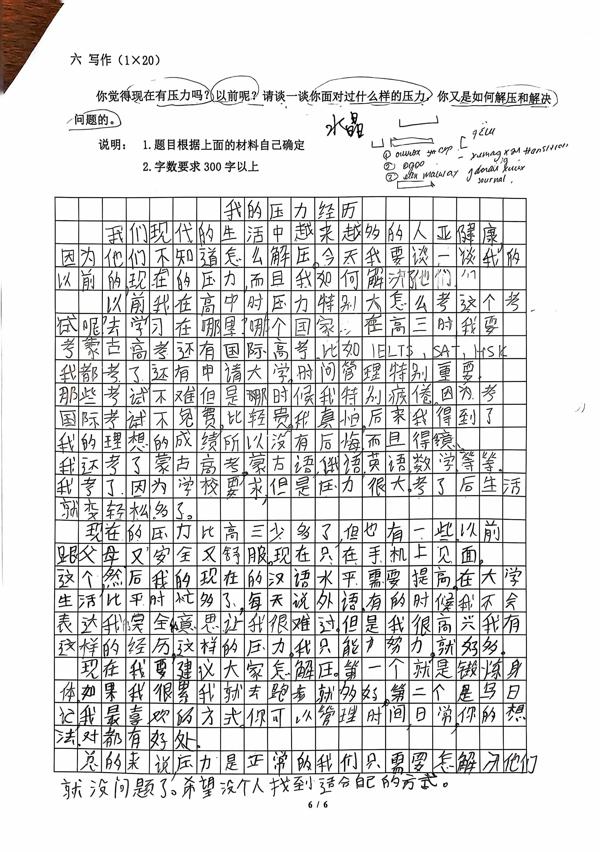 六 写作（1×20）
你觉得现在有压力吗？以前呢？请谈一谈你面对过什么样的压力，你又是如何解压和解决
问题的。
水晶
说明： 1.题目根据上面的材料自己确定
2.字数要求 300 字以上
我的压力经历
我们现代的生活中越来越多的人亚健康
因为他们不知道怎么解压。今天我要谈一谈我的
以前的,现在的压力,而且我如何解决他们
以前我在高中时压力特别大怎么考这个考
试呢?去学习在哪里?哪个国家 在高三时我要
考蒙古高考还有国际高考。比如 IELTS, SAT, HSK
我都考了还有申请大学,时间管理特别重要.
那些考试不难但是哪时候我特别疲倦。因为考
国际考试不免费,比较费,我真怕。后来我得到了
我的理想的成绩所以没有后悔而且得
我还考了蒙古高考。蒙古语,俄语,英语,数学,等等.
我考了因为学校要求,但是压力很大。考了后生活
就变轻松多了。
现在的压力比高三少多了,但也有一些以前
跟父母又安全又舒服,现在只在手机上见面。
这个,然后我的现在的汉语水平需要提高,在大学
生活比平时忙多了。每天说外语,有的时候我不会
表达我 全意思让我很难过,但是我很高兴我有
这样的经历,这样的压力。我只能努力,就够多.
现在我要建议大家怎解压。第一个就是锻炼身
体如果我很累我就去跑步就够好。第二个是写日
记我最喜欢的方式,你可以管理时间,日常你的想
法,对都有好处.
总的来说压力是正常的我们只需要怎解决他们
就没问题了。希望没个人找到适合自己的方式。
6 / 6